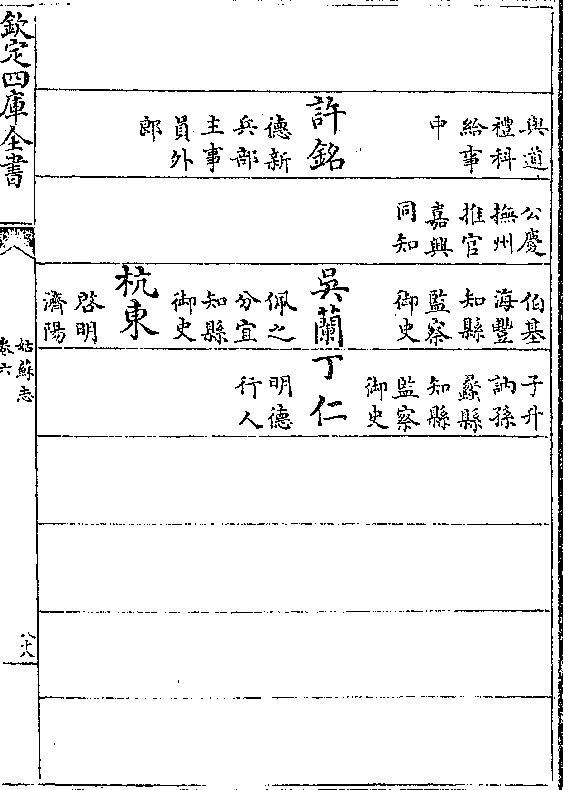 與道
禮科
給事
中
許銘
德新
兵部
主事
員外
郎
公慶
撫州
推官
嘉興
同知
伯基
海豐
知縣
監察
御史
吳蘭
佩之
分宜
知縣
御史
杭東
啓明
濟陽
子升
訥孫
蠡縣
知縣
監察
御史
丁仁
明德
行人
欽定四庫全書
姑蘇志
卷六